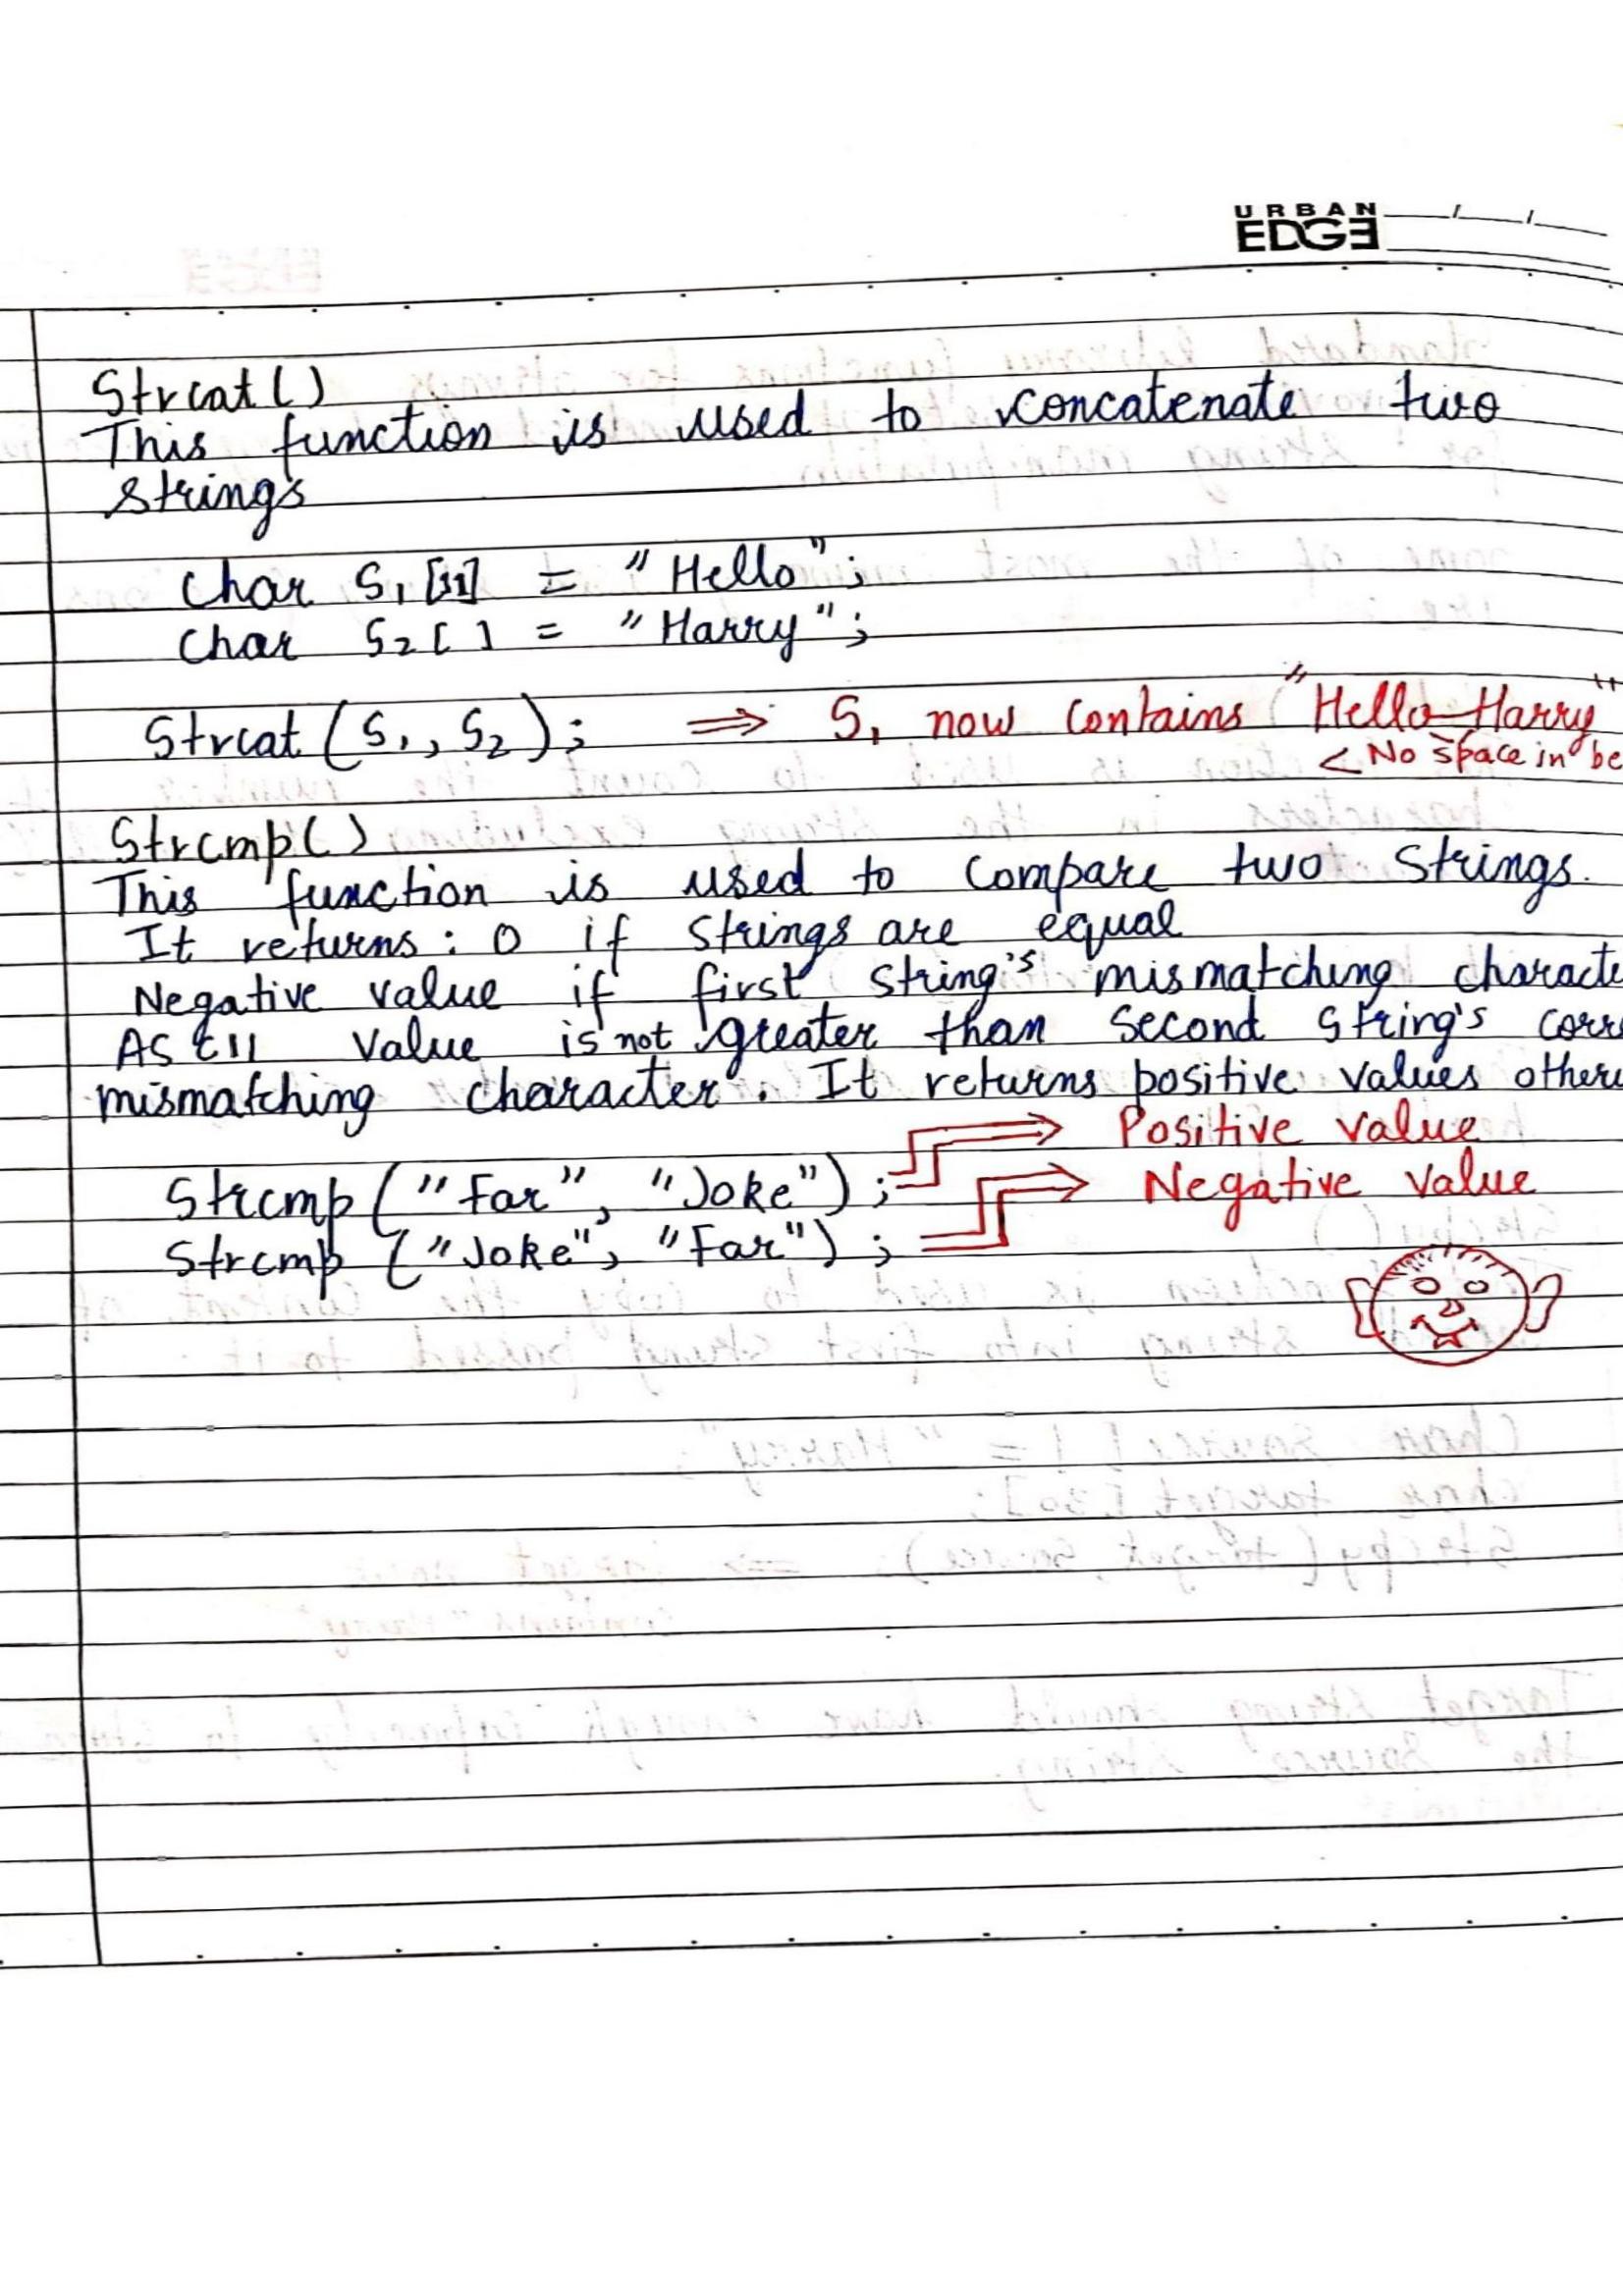 URBAN
EDGE
Strcat()
This function is used to concatenate two
strings
Char S1[11] = "Hello";
Char S2[ ] = "Harry";
Strcat(S1, S2); ⇒ S1 now contains "Hello Harry"
< No space in be
Strcmp()
This function is used to compare two strings.
It returns: 0 if strings are equal
Negative value if first string's mismatching characte
ASCII value is not greater than second string's corr
mismatching character. It returns positive values other
Positive value
Strcmp("Far", "Joke"); Negative value
Strcmp("Joke", "Far");